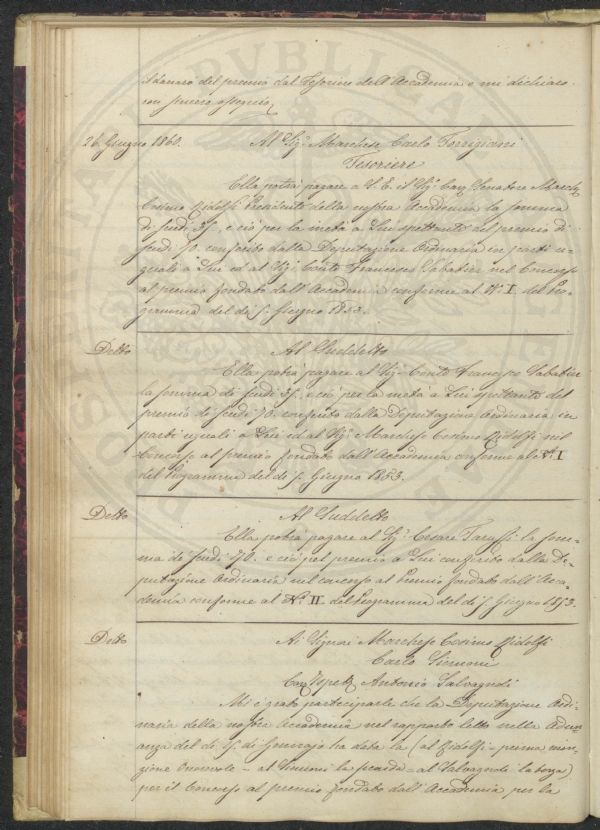 il danaro del premio dal Tesoriere dell'Accademia e mi dichiaro
con sincero ossequio
26. Giugno 1860. Al Sig.e Marchese Carlo Torrigiani
Tesoriere
Ella potrà pagare a S. E. il Sig. Cav. Senatore March.
Cosimo Ridolfi Presidente della nostra Accademia la somma
di scudi 35. e ciò per la metà a Lui spettante nel premio di
scudi 70. conferito dalla Deputazione Ordinaria in parti u-
guali a Lui ed al Sig. Conte Francesco Sabatier nel Concorso
al premio fondato dall'Accademia conforme al N. I. del Pro-
gramma del dì 5. Giugno 1853.
Detto Al Suddetto
Ella potrà pagare al Sig. Conte Francesco Sabatier
la somma di scudi 35. e ciò per la metà a Lui spettante del
premio di scudi 70. conferito dalla Deputazione Ordinaria in
parti uguali a Lui ed al Sig. Marchese Cosimo Ridolfi nel
Concorso al premio fondato dall'Accademia conforme al N. I
del Programma del dì 5. Giugno 1853.
Detto Al Suddetto
Ella potrà pagare al Sig. Cesare Taruffi la som-
ma di scudi 70. e ciò pel premio a Lui conferito dalla De-
putazione Ordinaria nel concorso al Premio fondato dall'Acca-
demia conforme al N. II. del Programma del dì 5. Giugno 1853.
Detto Ai Signori Marchese Cosimo Ridolfi
Carlo Siemoni
Cav. Ispett. Antonio Salvagnoli
Mi è grato parteciparle che la Deputazione Ordi-
naria della nostra Accademia nel rapporto letto nella Adu-
nanza del dì di Gennajo ha data la (al Ridolfi = prima men-
zione Onorevole = al Siemoni la seconda = al Salvagnoli la terza)
per il Concorso al premio fondato dall'Accademia per la